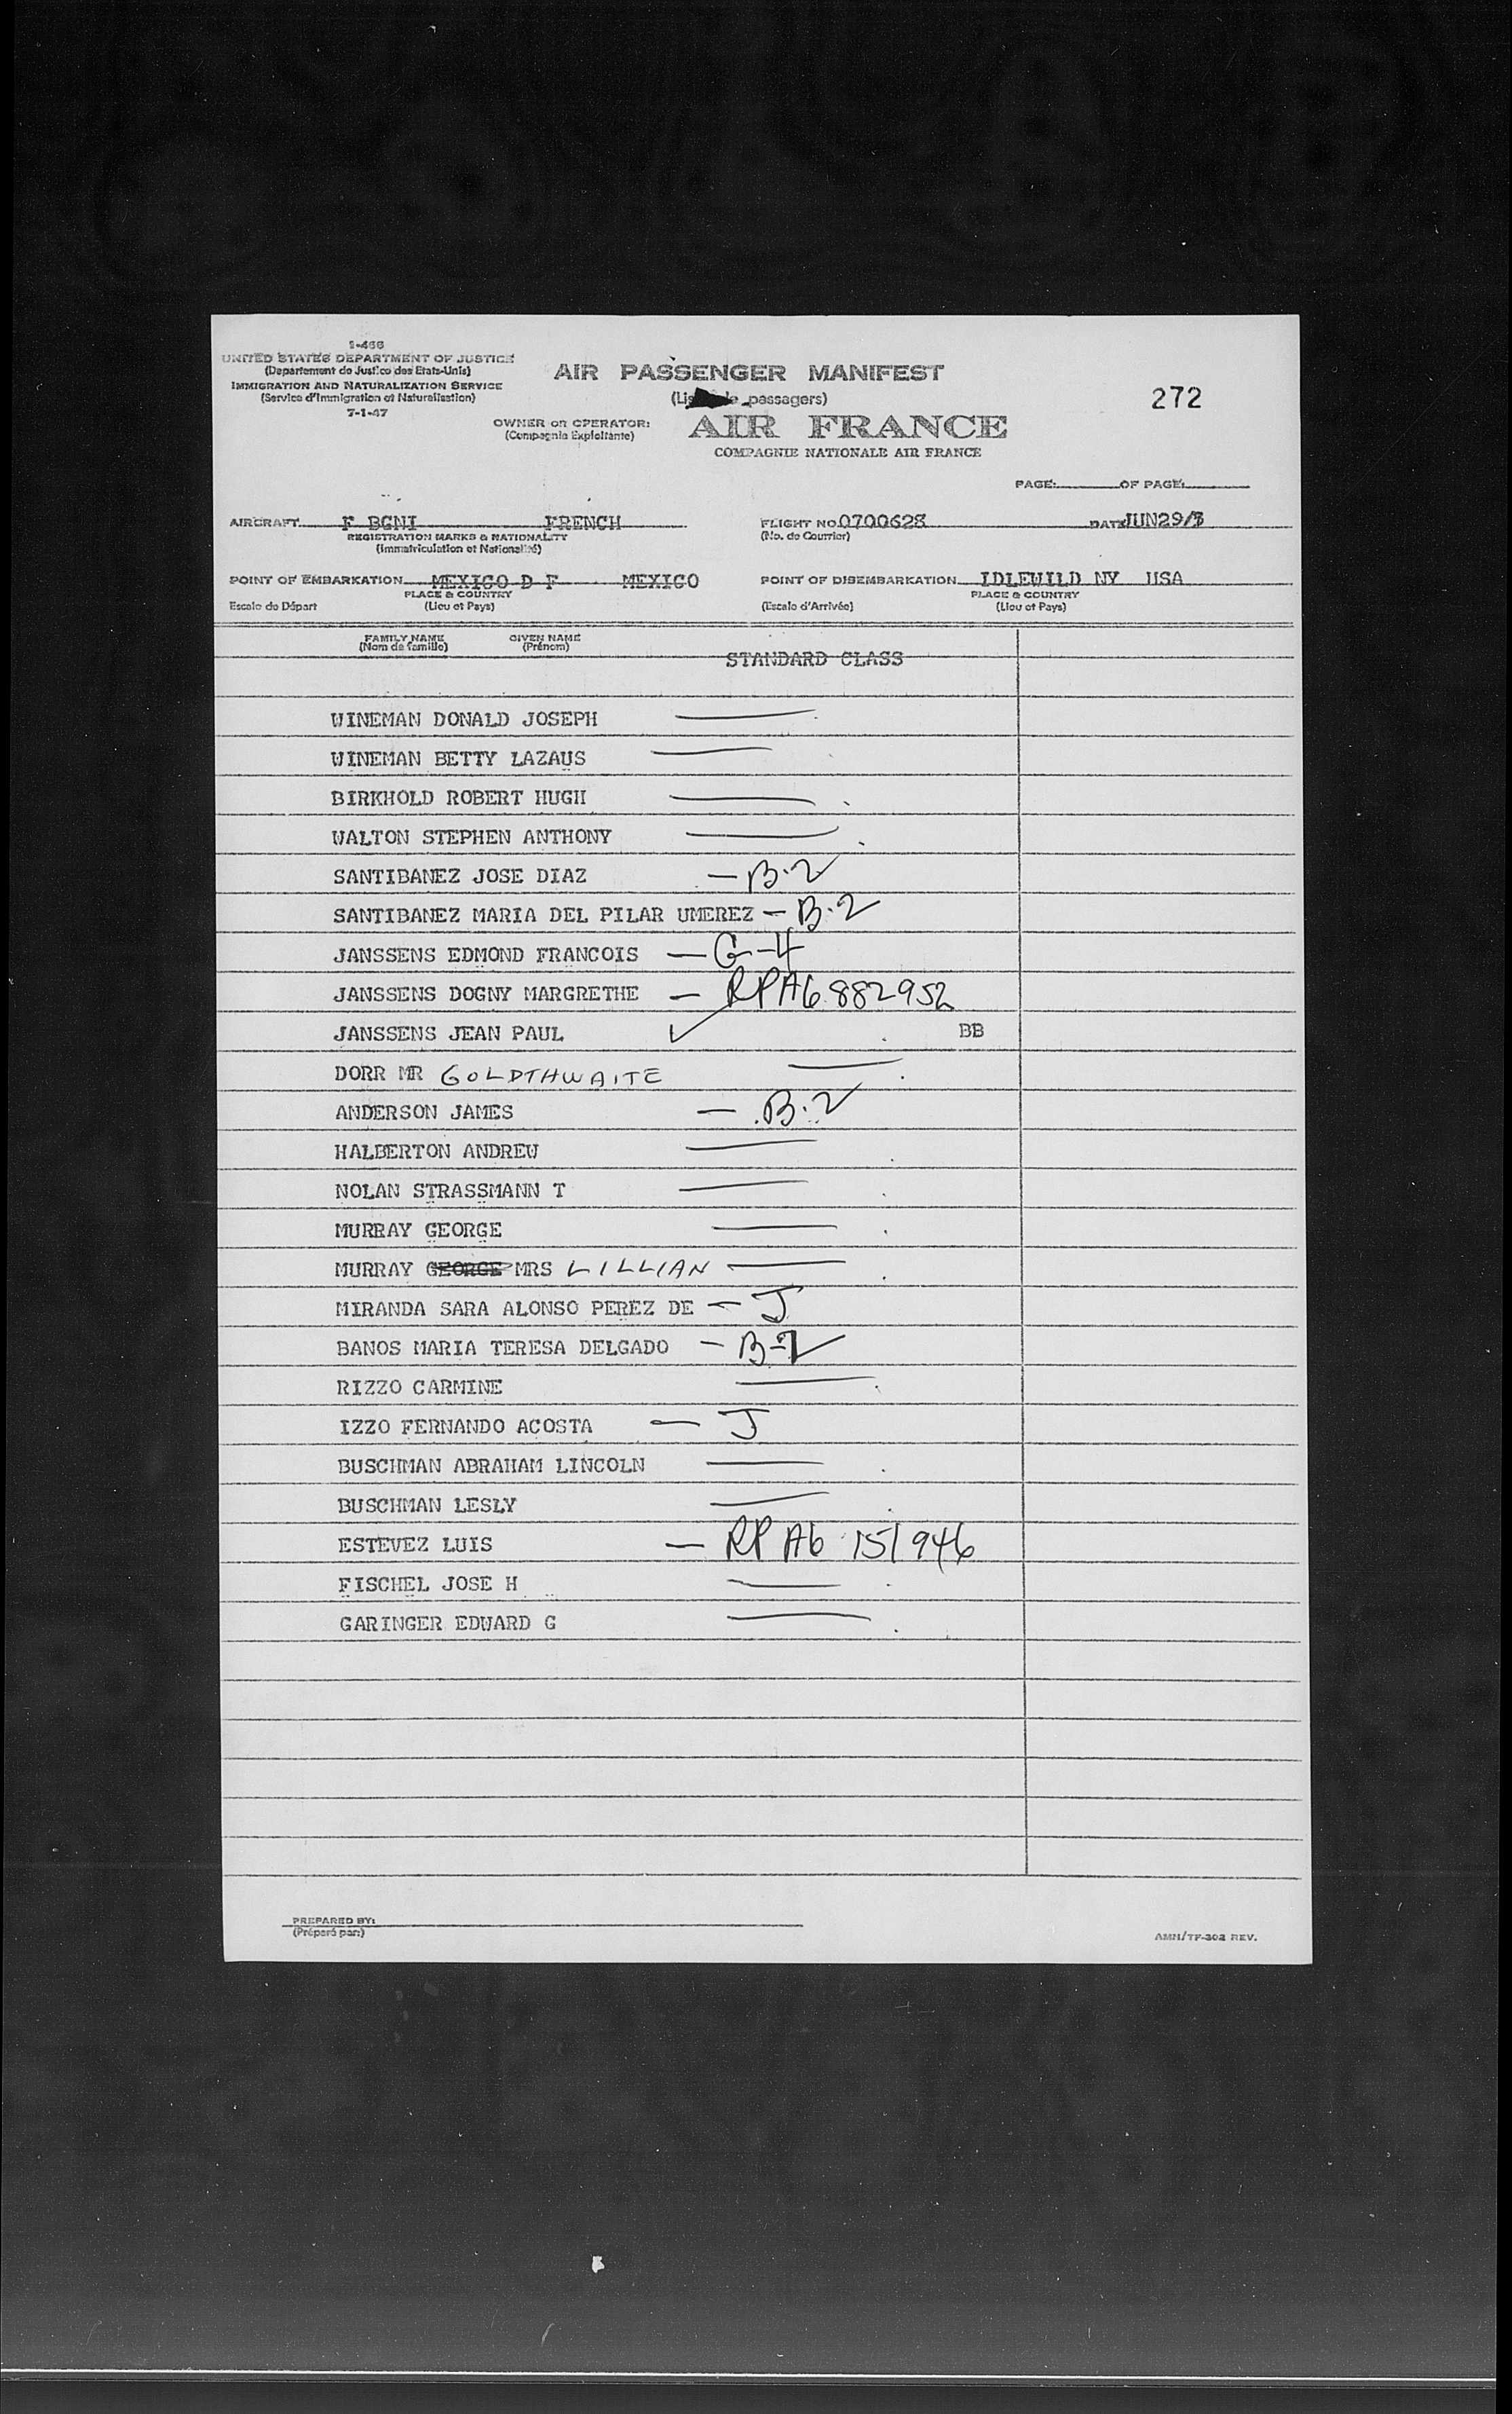 I-466
UNITED STATES DEPARTMENT OF JUSTICE
(Departement de Justice des Etats-Unis)
IMMIGRATION AND NATURALIZATION SERVICE
(Service d'Immigration et Naturalisation)
7-1-47
AIR PASSENGER MANIFEST
passagers)
272
OWNER OR OPERATOR:
(Compagnie Exploitante)
AIR FRANCE
COMPAGNIE NATIONALE AIR FRANCE
PAGE: OF PAGE:
AIRCRAFT F BGNI FRENCH FLIGHT NO. 0700628 DATE JUN29/
REGISTRATION MARKS & NATIONALITY (No. de Courrier)
(Immatriculation et Nationalité)
POINT OF EMBARKATION MEXICO D F MEXICO POINT OF DISEMBARKATION IDLEWILD NY USA
PLACE & COUNTRY PLACE & COUNTRY
Escale de Départ (Lieu et Pays) (Escale d'Arrivée) (Lieu et Pays)
FAMILY NAME GIVEN NAME
(Nom de famille) (Prénom)
STANDARD CLASS
WINEMAN DONALD JOSEPH
WINEMAN BETTY LAZAUS
BIRKHOLD ROBERT HUGH
WALTON STEPHEN ANTHONY
SANTIBANEZ JOSE DIAZ — B-2
SANTIBANEZ MARIA DEL PILAR UMEREZ — B-2
JANSSENS EDMOND FRANCOIS — G-4
JANSSENS DOGNY MARGRETHE — RPA6 882952
JANSSENS JEAN PAUL ✓ BB
DORR MR GOLDTHWAITE
ANDERSON JAMES — B-2
HALBERTON ANDREW
NOLAN STRASSMANN T
MURRAY GEORGE
MURRAY GEORGE MRS LILLIAN
MIRANDA SARA ALONSO PEREZ DE — J
BANOS MARIA TERESA DELGADO — B-2
RIZZO CARMINE
IZZO FERNANDO ACOSTA — J
BUSCHMAN ABRAHAM LINCOLN
BUSCHMAN LESLY
ESTEVEZ LUIS — RPA6 151946
FISCHEL JOSE H
GARINGER EDWARD G
PREPARED BY:
(Préparé par:)
AMN/TF-302 REV.